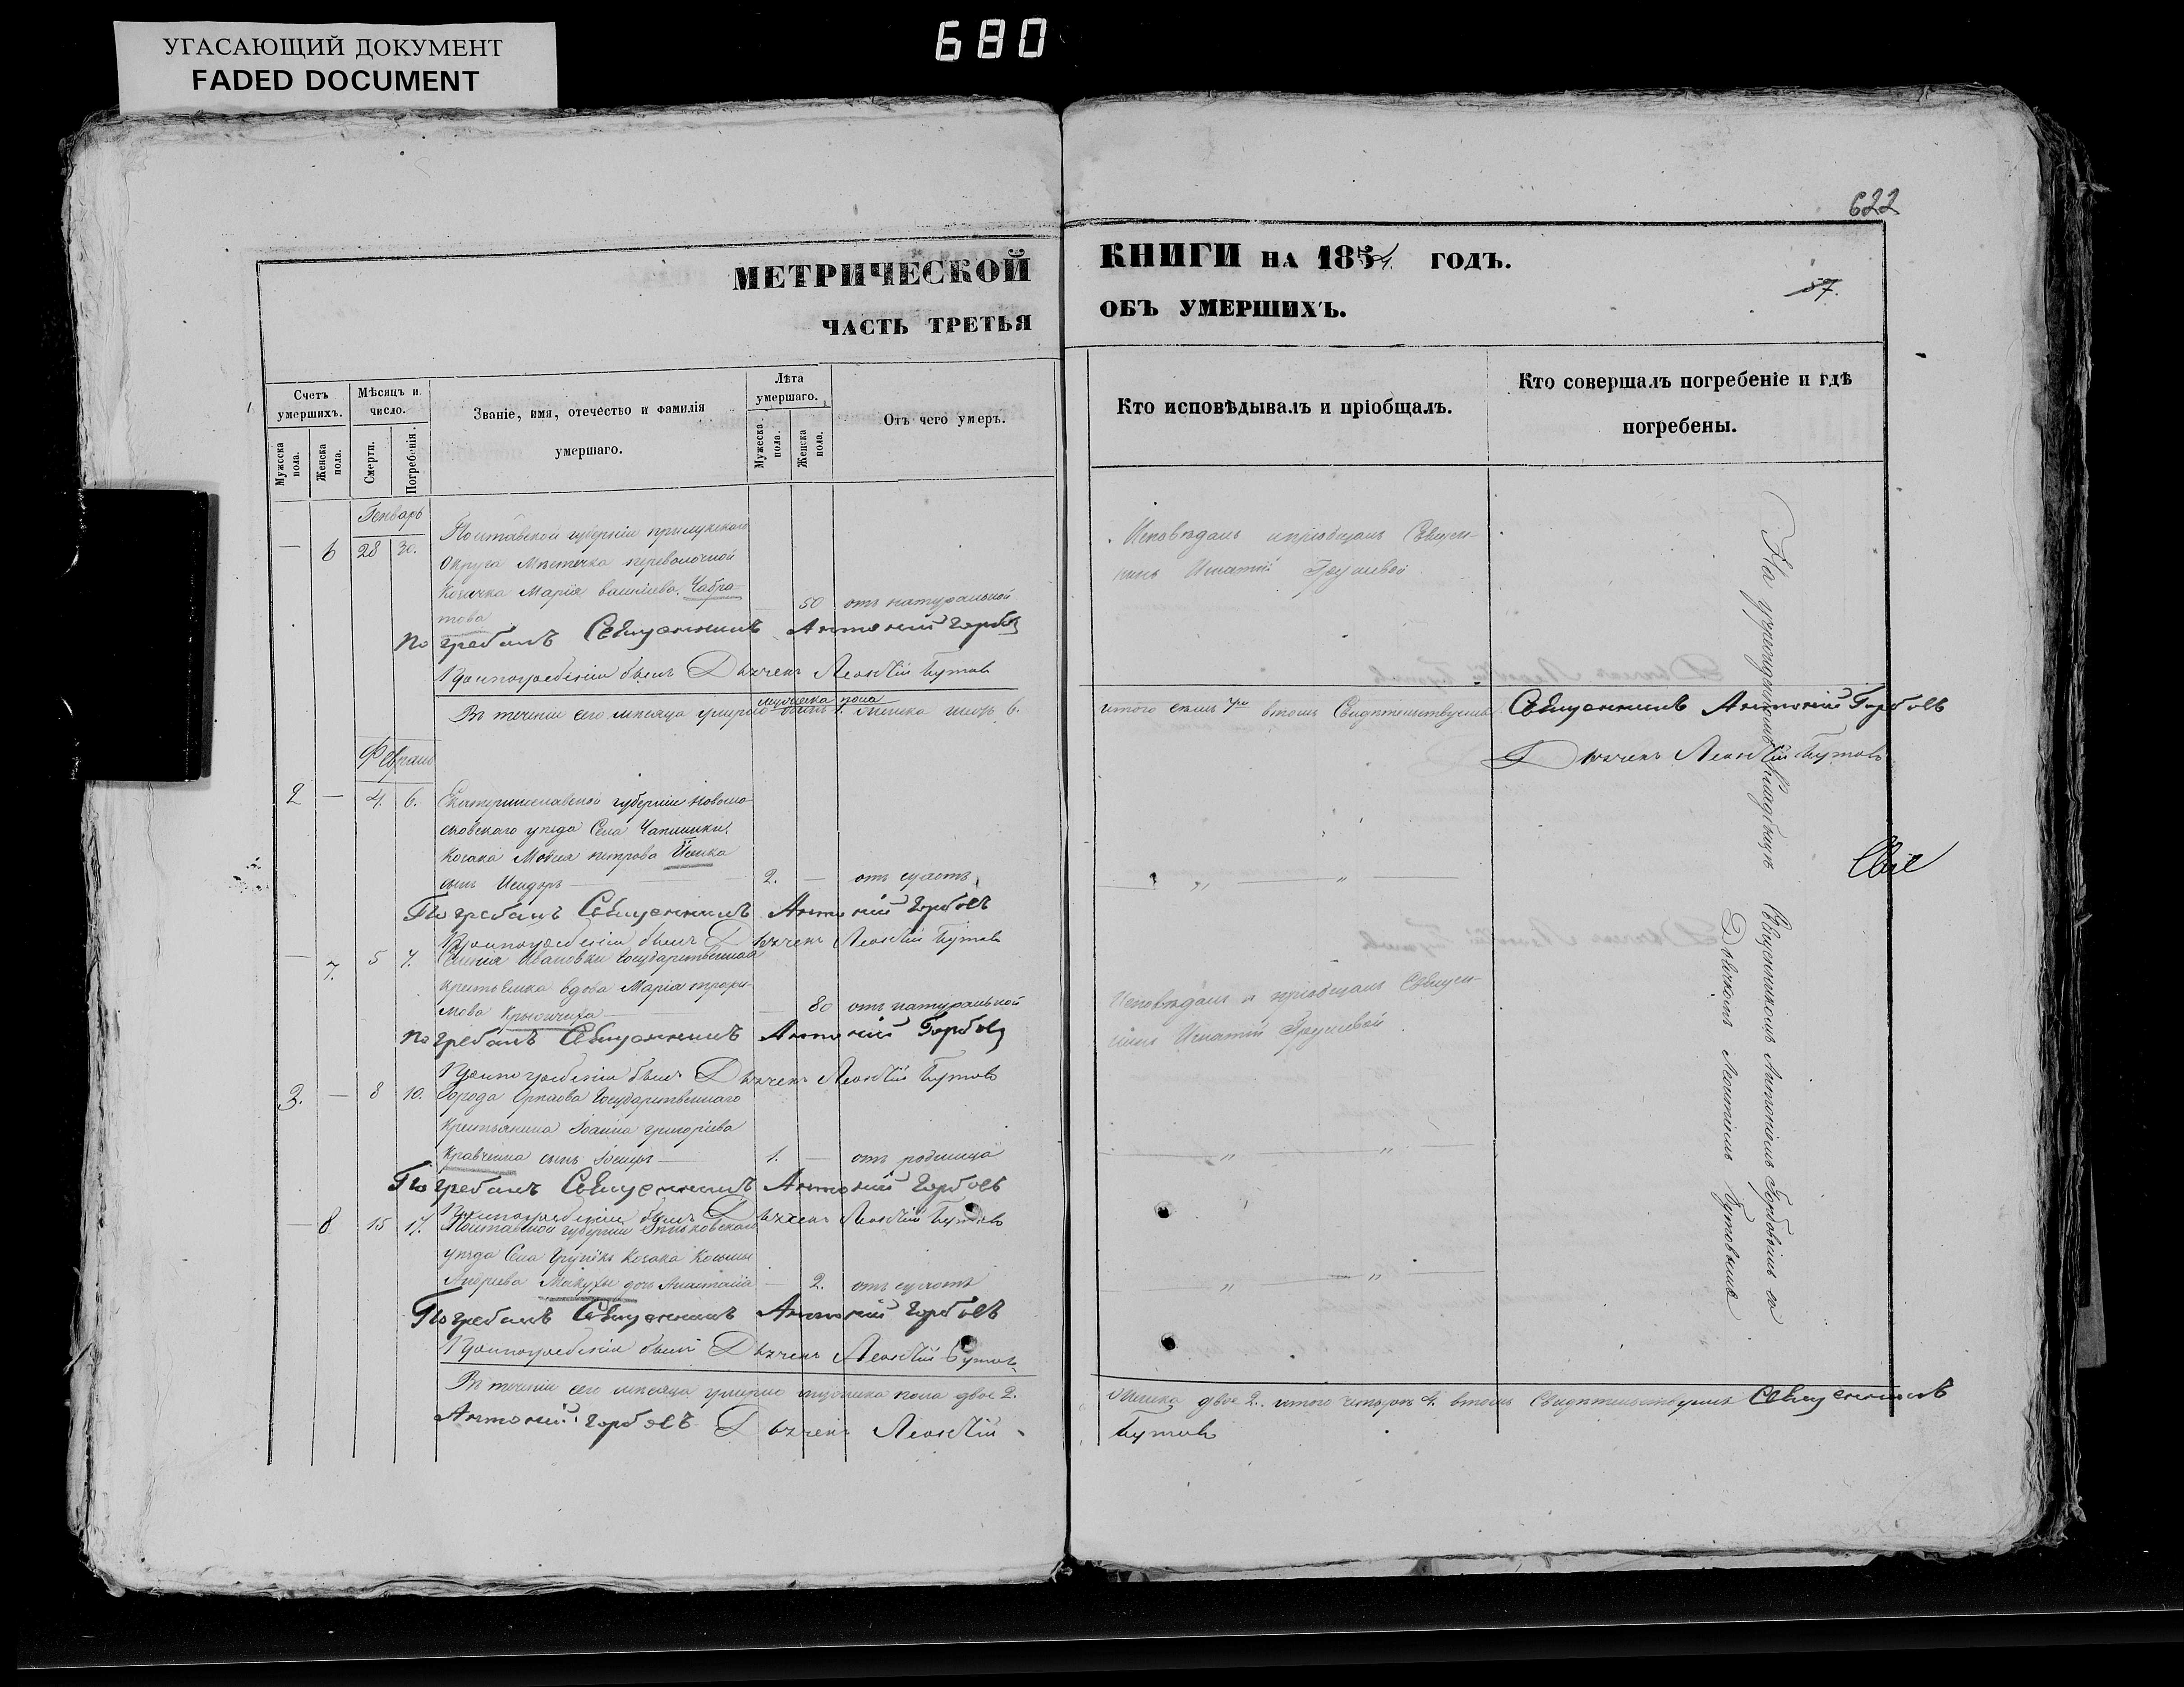 УГАСАЮЩИЙ ДОКУМЕНТ
FADED DOCUMENT
680
622
МЕТРИЧЕСКОЙ
ЧАСТЬ ТРЕТЬЯ
КНИГИ НА 1854. ГОДЪ.
ОБЪ УМЕРШИХЪ.
57.
Счетъ умершихъ.
Мужеска пола.
Женска пола.
Мѣсяцъ и число.
Смерти.
Погребенія.
Званіе, имя, отечество и фамилія
умершаго.
Лѣта умершаго.
Мужеска пола.
Женска пола.
Отъ чего умеръ.
Кто исповѣдывалъ и пріобщалъ.
Кто совершалъ погребеніе и гдѣ
погребены.
Генварь
— 6 28 30. Полтавской губерніи прилукскаго
округа Мѣстечка переволочной
Козачка Марія васильева Чабра-
това — 50 отъ натуральной
Исповѣдалъ и пріобщалъ Священ-
никъ Игнатій
Погребалъ Священникъ Антоній Горбовъ
При погребеніи былъ Дьячекъ Леонтій Бутовъ
мужеска пола
Въ теченіи сего мѣсяца умерло 1. женска шесть 6.
итого семь 7. въ томъ Свидѣтельствуемъ Священникъ Антоній Горбовъ
Дьячекъ Леонтій Бутовъ
Февраль
2 — 4. 6. Екатеринославской губерніи новомо-
сковскаго уѣзда Села Чаплинки
Козака Мовсея петрова
сынъ Исидоръ — 2. — отъ сухотъ
— „ — „ —
Погребалъ Священникъ Антоній Горбовъ
При погребеніи былъ Дьячекъ Леонтій Бутовъ
— 7. 5 7. Ивановки государственная
крестьянка вдова Марія трофи-
мова — 80 отъ натуральной
Исповѣдалъ и пріобщалъ Священ-
никъ Игнатій
Погребалъ Священникъ Антоній Горбовъ
При погребеніи былъ Дьячекъ Леонтій Бутовъ
3. — 8 10. Города Орѣхова Государственнаго
крестьянина Іоанна григоріева
Кравченка сынъ — 1. — отъ родимца
— „ — „ —
Погребалъ Священникъ Антоній Горбовъ
При погребеніи былъ Дьячекъ Леонтій Бутовъ
— 8 15 17. Полтавской губерніи Зѣньковскаго
уѣзда Села Козака Космы
Андреева Макухи дочь Анастасія — 2. отъ сухотъ
— „ — „ —
Погребалъ Священникъ Антоній Горбовъ
При погребеніи былъ Дьячекъ Леонтій Бутовъ
Въ теченіи сего мѣсяца умерло мужеска пола двое 2.
женска двое 2. итого четыре 4. въ томъ Свидѣтельствуемъ Священникъ
Антоній Горбовъ Дьячекъ Леонтій
Бутовъ
На Кладбищѣ Священникомъ Антоніемъ Горбовымъ съ
Дьячкомъ Леонтіемъ Бутовымъ